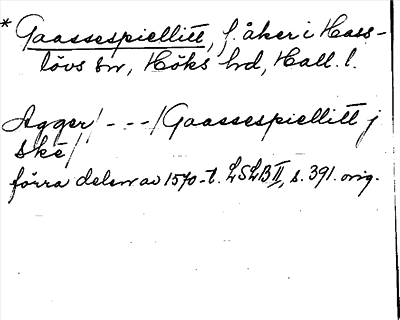 * Gaassespiellitt, f. åker i Hass-
lövs sn, Höks hd, Hall. l.
Agger/ - - - / Gaassespiellitt j
ske/
förra delen av 1570-t. LSLB II, s. 391. orig.